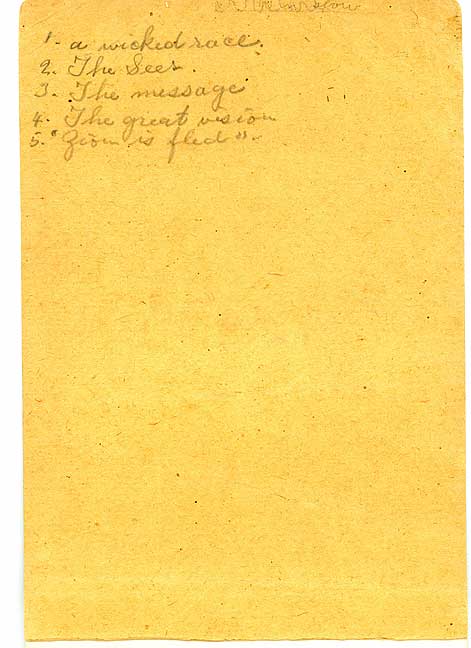 1. a wicked race.
2. The Seer.
3. The message
4. The great vision
5. "Zion is fled".